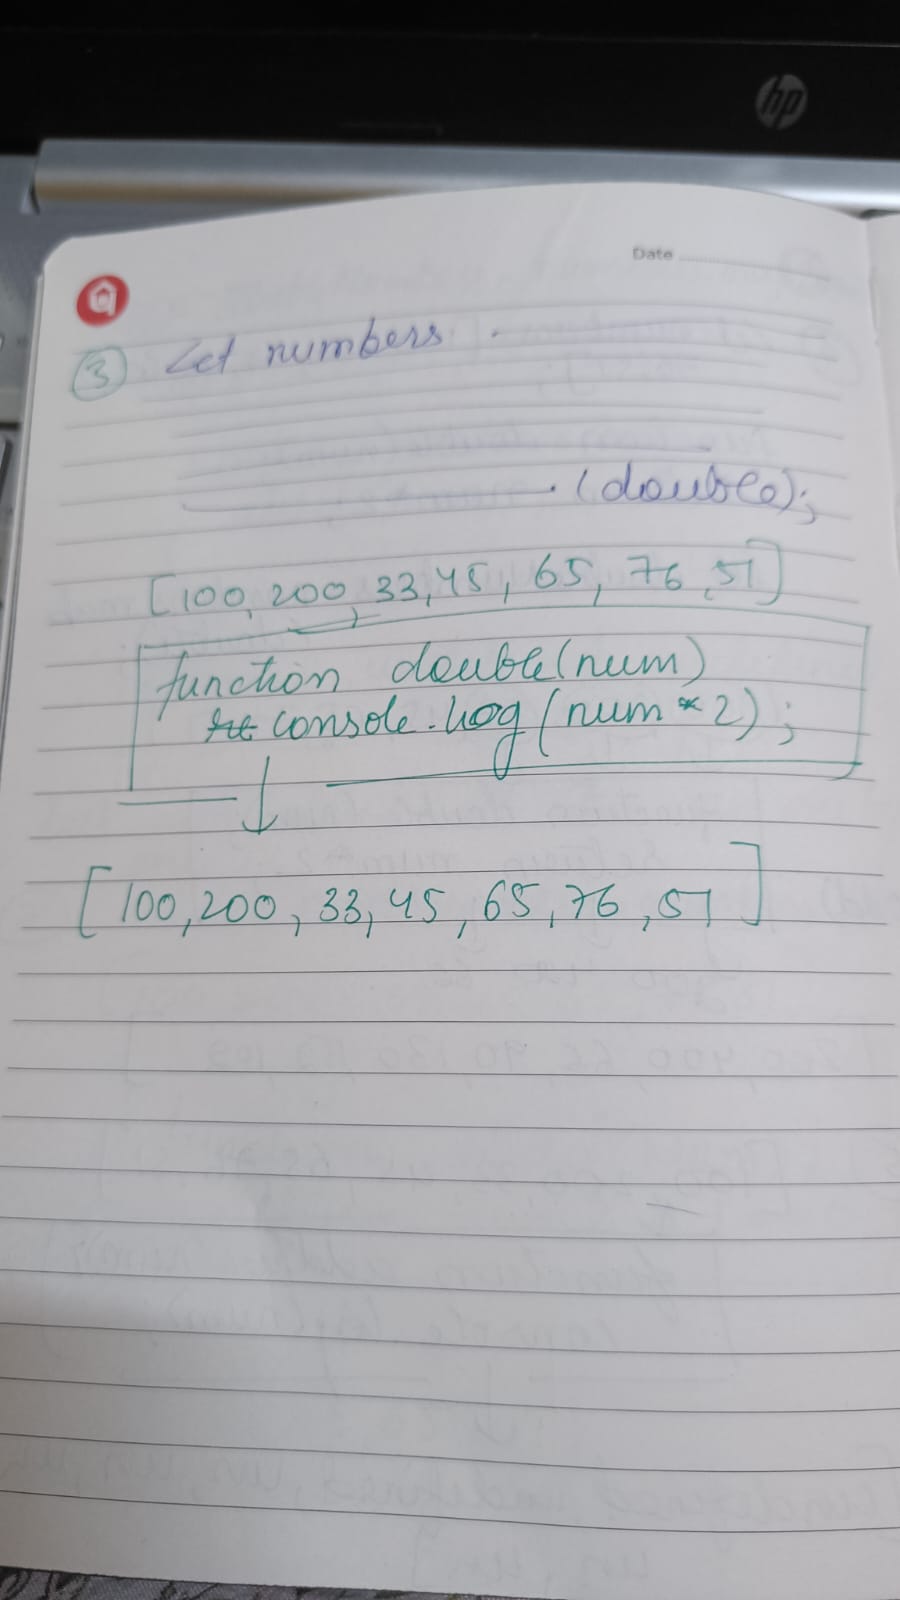 hp
Date
3 Let numbers
. (double);
[100, 200, 33, 45, 65, 76, 51]
function double(num)
console.log(num * 2);
[100, 200, 33, 45, 65, 76, 51]